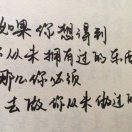 如果你想得到
你从未拥有过的东西
那么你必须
去做你从未做过的